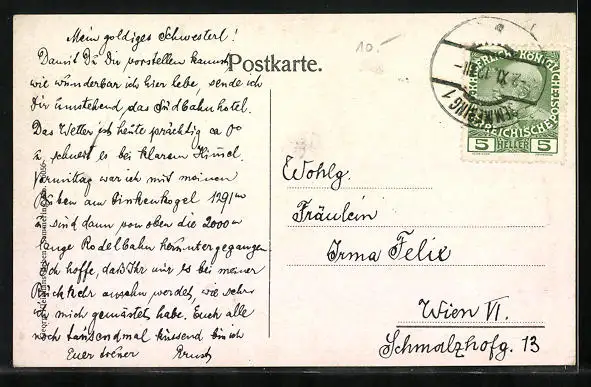 Mein goldiges Schwesterl!
Damit Du Dir vorstellen kannst,
wie wunderbar ich hier lebe, sende ich
Dir umstehend, das Südbahnhotel.
Das Wetter ist heute prächtig ca 0°
u. schneit es bei klarem Himmel.
Vormittag war ich mit meinen
am Pinkenkogel 1291m
u. sind dann von oben die 2000m
lange Rodelbahn heruntergegangen
Ich hoffe, daß Ihr mir es bei meiner
Rückkehr ansehn werdet, wie sehr
ich mich gemästet habe. Euch alle
noch tausendmal küssend bin ich
Euer treuer Ernst
Postkarte.
10.-
SEMMERING 1
5 HELLER 5
Wohlg.
Fräulein
Irma Felix
Wien VI.
Schmalzhofg. 13